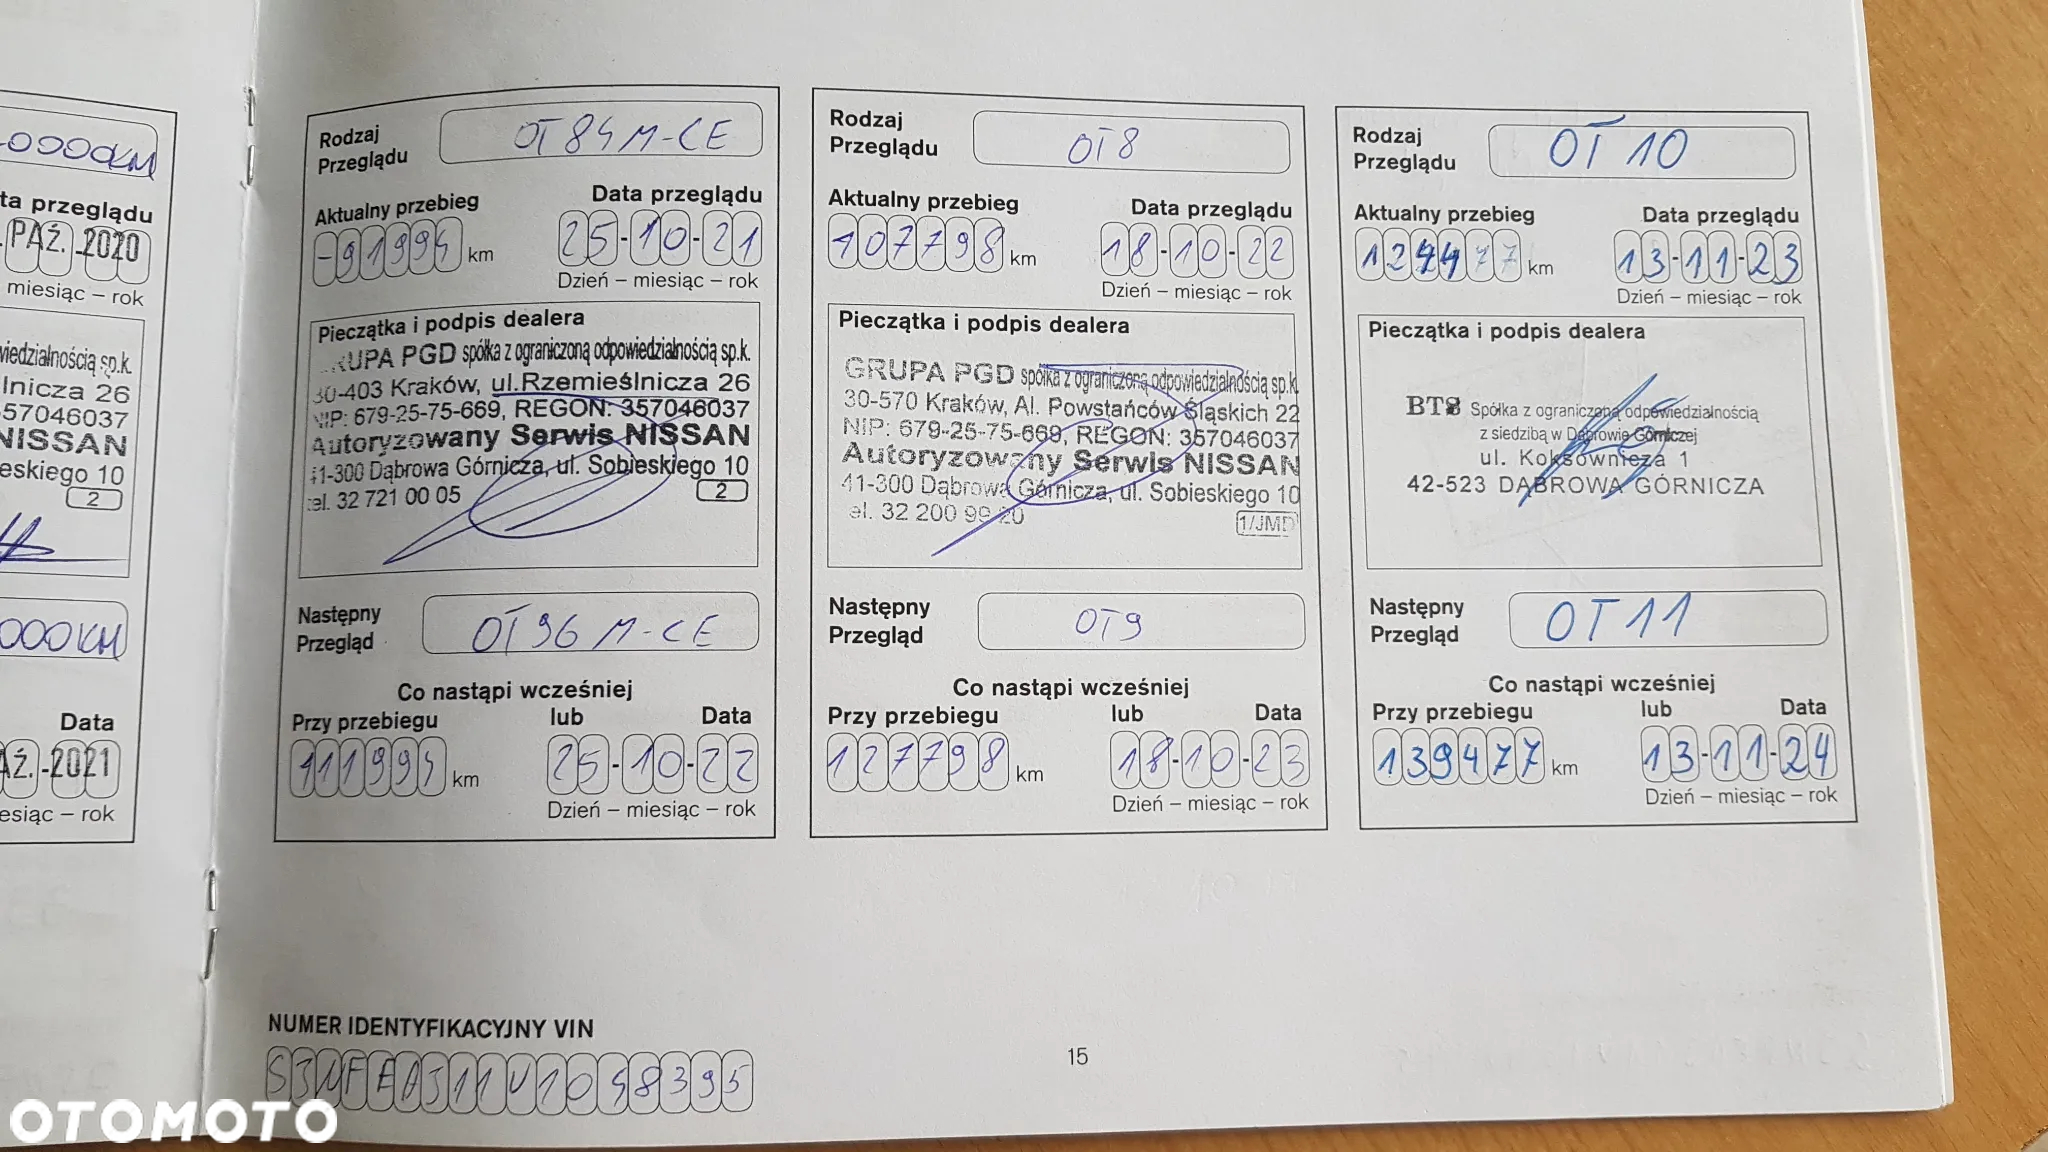 0000KM
ta przeglądu
PAŹ. -2020
miesiąc – rok
wiedzialnością sp.k.
lnicza 26
57046037
NISSAN
eskiego 10
2
000KM
Data
AŹ.-2021
esiąc – rok
Rodzaj
Przeglądu
OT84M-CE
Aktualny przebieg
Data przeglądu
-91994 km
25-10-21
Dzień – miesiąc – rok
Pieczątka i podpis dealera
RUPA PGD spółka z ograniczoną odpowiedzialnością sp.k.
30-403 Kraków, ul.Rzemieślnicza 26
NIP: 679-25-75-669, REGON: 357046037
Autoryzowany Serwis NISSAN
41-300 Dąbrowa Górnicza, ul. Sobieskiego 10
tel. 32 721 00 05
2
Następny
Przegląd
OT96 M-CE
Co nastąpi wcześniej
Przy przebiegu lub Data
111994 km
25-10-22
Dzień – miesiąc – rok
Rodzaj
Przeglądu
OT8
Aktualny przebieg
Data przeglądu
107798 km
18-10-22
Dzień – miesiąc – rok
Pieczątka i podpis dealera
GRUPA PGD spółka z ograniczoną odpowiedzialnością sp.k.
30-570 Kraków, Al. Powstańców Śląskich 22
NIP: 679-25-75-669, REGON: 357046037
Autoryzowany Serwis NISSAN
41-300 Dąbrowa Górnicza, ul. Sobieskiego 10
el. 32 200 99 20
1/JMD
Następny
Przegląd
OT9
Co nastąpi wcześniej
Przy przebiegu lub Data
127798 km
18-10-23
Dzień – miesiąc – rok
Rodzaj
Przeglądu
OT 10
Aktualny przebieg
Data przeglądu
124477 km
13-11-23
Dzień – miesiąc – rok
Pieczątka i podpis dealera
BT8 Spółka z ograniczoną odpowiedzialnością
z siedzibą w Dąbrowie Górniczej
ul. Koksownicza 1
42-523 DĄBROWA GÓRNICZA
Następny
Przegląd
OT11
Co nastąpi wcześniej
Przy przebiegu lub Data
139477 km
13-11-24
Dzień – miesiąc – rok
NUMER IDENTYFIKACYJNY VIN
SJNFEAJ11U1048395
15
OTOMOTO